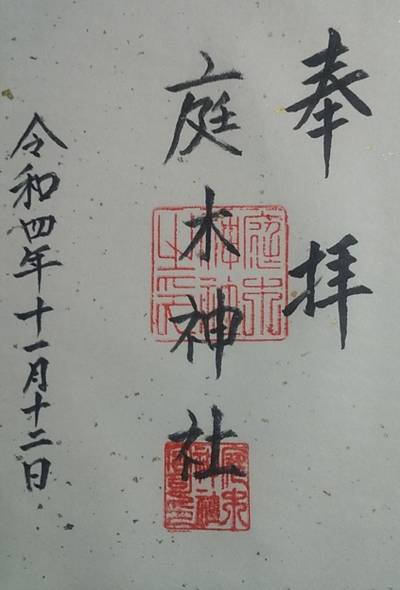 奉拝
庭木神社
令和四年十一月十二日